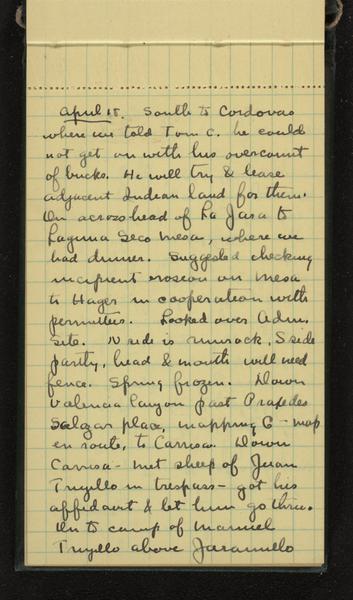 April 18. South to Cordovas
where we told Tom C. he could
not get on with his overcount
of bucks. He will try & lease
adjacent Indian land for them.
On across head of La Jara to
Laguna Seco Mesa, where we
had dinner. Suggested checking
incipient erosion on Mesa
to Hager in cooperation with
permittees. Looked over Adm.
site. N side is rimrock, S side
partly, head & mouth will need
fence. Spring frozen. Down
Valencia Canyon past Praxedes
Salazar place, mapping G - map
en route, to Carrisa. Down
Carrisa - met sheep of Juan
Trujillo in trespass - got his
affidavit & let him go thru.
On to camp of Manuel
Trujillo above Jaramillo